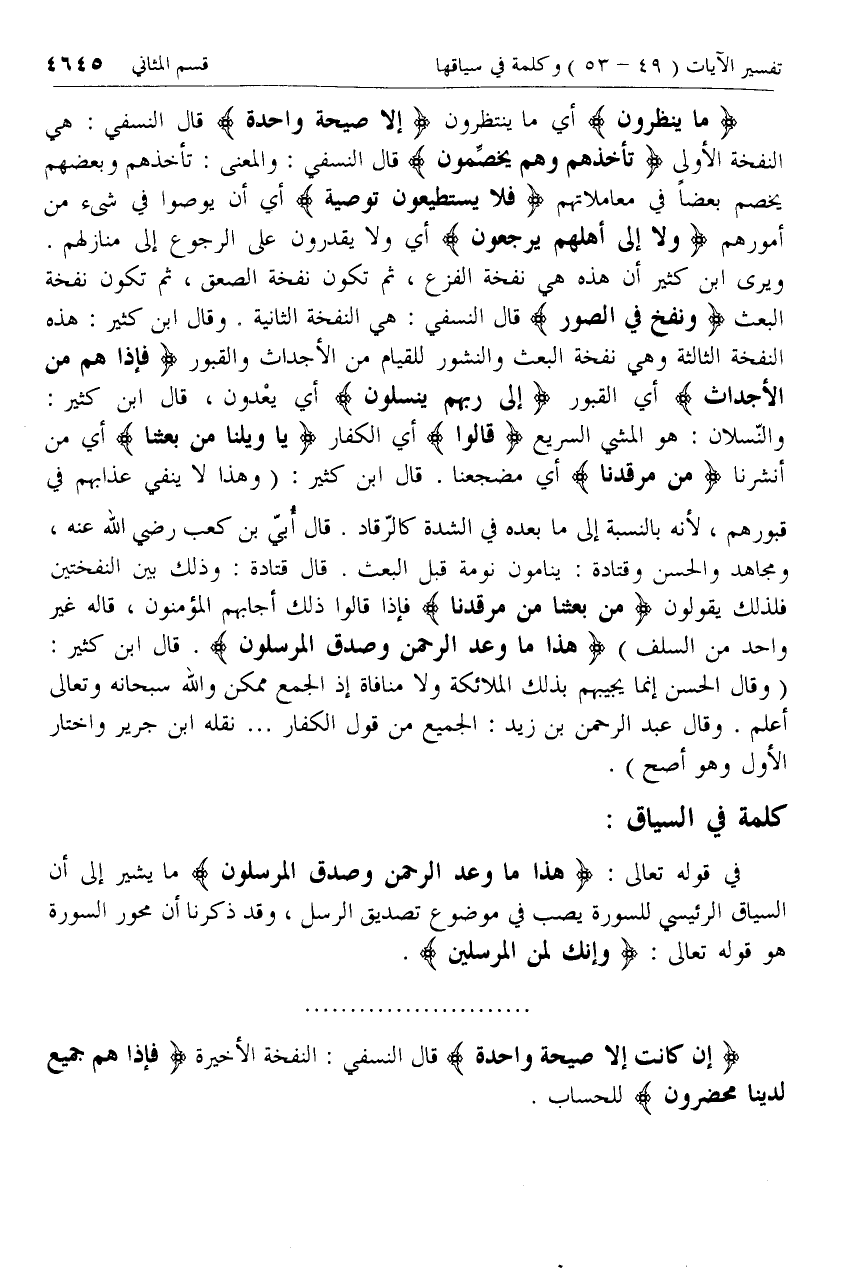 تفسير الآيات ( ٤٩ – ٥٣ ) وكلمة في سياقها قسم المثاني ٤٦٤٥
﴿ ما ينظرون ﴾ أي ما ينتظرون ﴿ إلا صيحة واحدة ﴾ قال النسفي : هي
النفخة الأولى ﴿ تأخذهم وهم يخصِّمون ﴾ قال النسفي : والمعنى : تأخذهم وبعضهم
يخصم بعضاً في معاملاتهم ﴿ فلا يستطيعون توصية ﴾ أي أن يوصوا في شيء من
أمورهم ﴿ ولا إلى أهلهم يرجعون ﴾ أي ولا يقدرون على الرجوع إلى منازلهم .
ويرى ابن كثير أن هذه هي نفخة الفزع ، ثم تكون نفخة الصعق ، ثم تكون نفخة
البعث ﴿ ونفخ في الصور ﴾ قال النسفي : هي النفخة الثانية . وقال ابن كثير : هذه
النفخة الثالثة وهي نفخة البعث والنشور للقيام من الأجداث والقبور ﴿ فإذا هم من
الأجداث ﴾ أي القبور ﴿ إلى ربهم ينسلون ﴾ أي يعْدون ، قال ابن كثير :
والنّسلان : هو المشي السريع ﴿ قالوا ﴾ أي الكفار ﴿ يا ويلنا من بعثنا ﴾ أي من
أنشرنا ﴿ من مرقدنا ﴾ أي مضجعنا . قال ابن كثير : ( وهذا لا ينفي عذابهم في
قبورهم ، لأنه بالنسبة إلى ما بعده في الشدة كالرّقاد . قال أُبيّ بن كعب رضي الله عنه ،
ومجاهد والحسن وقتادة : ينامون نومة قبل البعث . قال قتادة : وذلك بين النفختين
فلذلك يقولون ﴿ من بعثنا من مرقدنا ﴾ فإذا قالوا ذلك أجابهم المؤمنون ، قاله غير
واحد من السلف ) ﴿ هذا ما وعد الرحمن وصدق المرسلون ﴾ . قال ابن كثير :
( وقال الحسن إنما يجيبهم بذلك الملائكة ولا منافاة إذ الجمع ممكن والله سبحانه وتعالى
أعلم . وقال عبد الرحمن بن زيد : الجميع من قول الكفار ... نقله ابن جرير واختار
الأول وهو أصح ) .
كلمة في السياق :
في قوله تعالى : ﴿ هذا ما وعد الرحمن وصدق المرسلون ﴾ ما يشير إلى أن
السياق الرئيسي للسورة يصب في موضوع تصديق الرسل ، وقد ذكرنا أن محور السورة
هو قوله تعالى : ﴿ وإنك لمن المرسلين ﴾ .
.........................
﴿ إن كانت إلا صيحة واحدة ﴾ قال النسفي : النفخة الأخيرة ﴿ فإذا هم جميع
لدينا محضرون ﴾ للحساب .